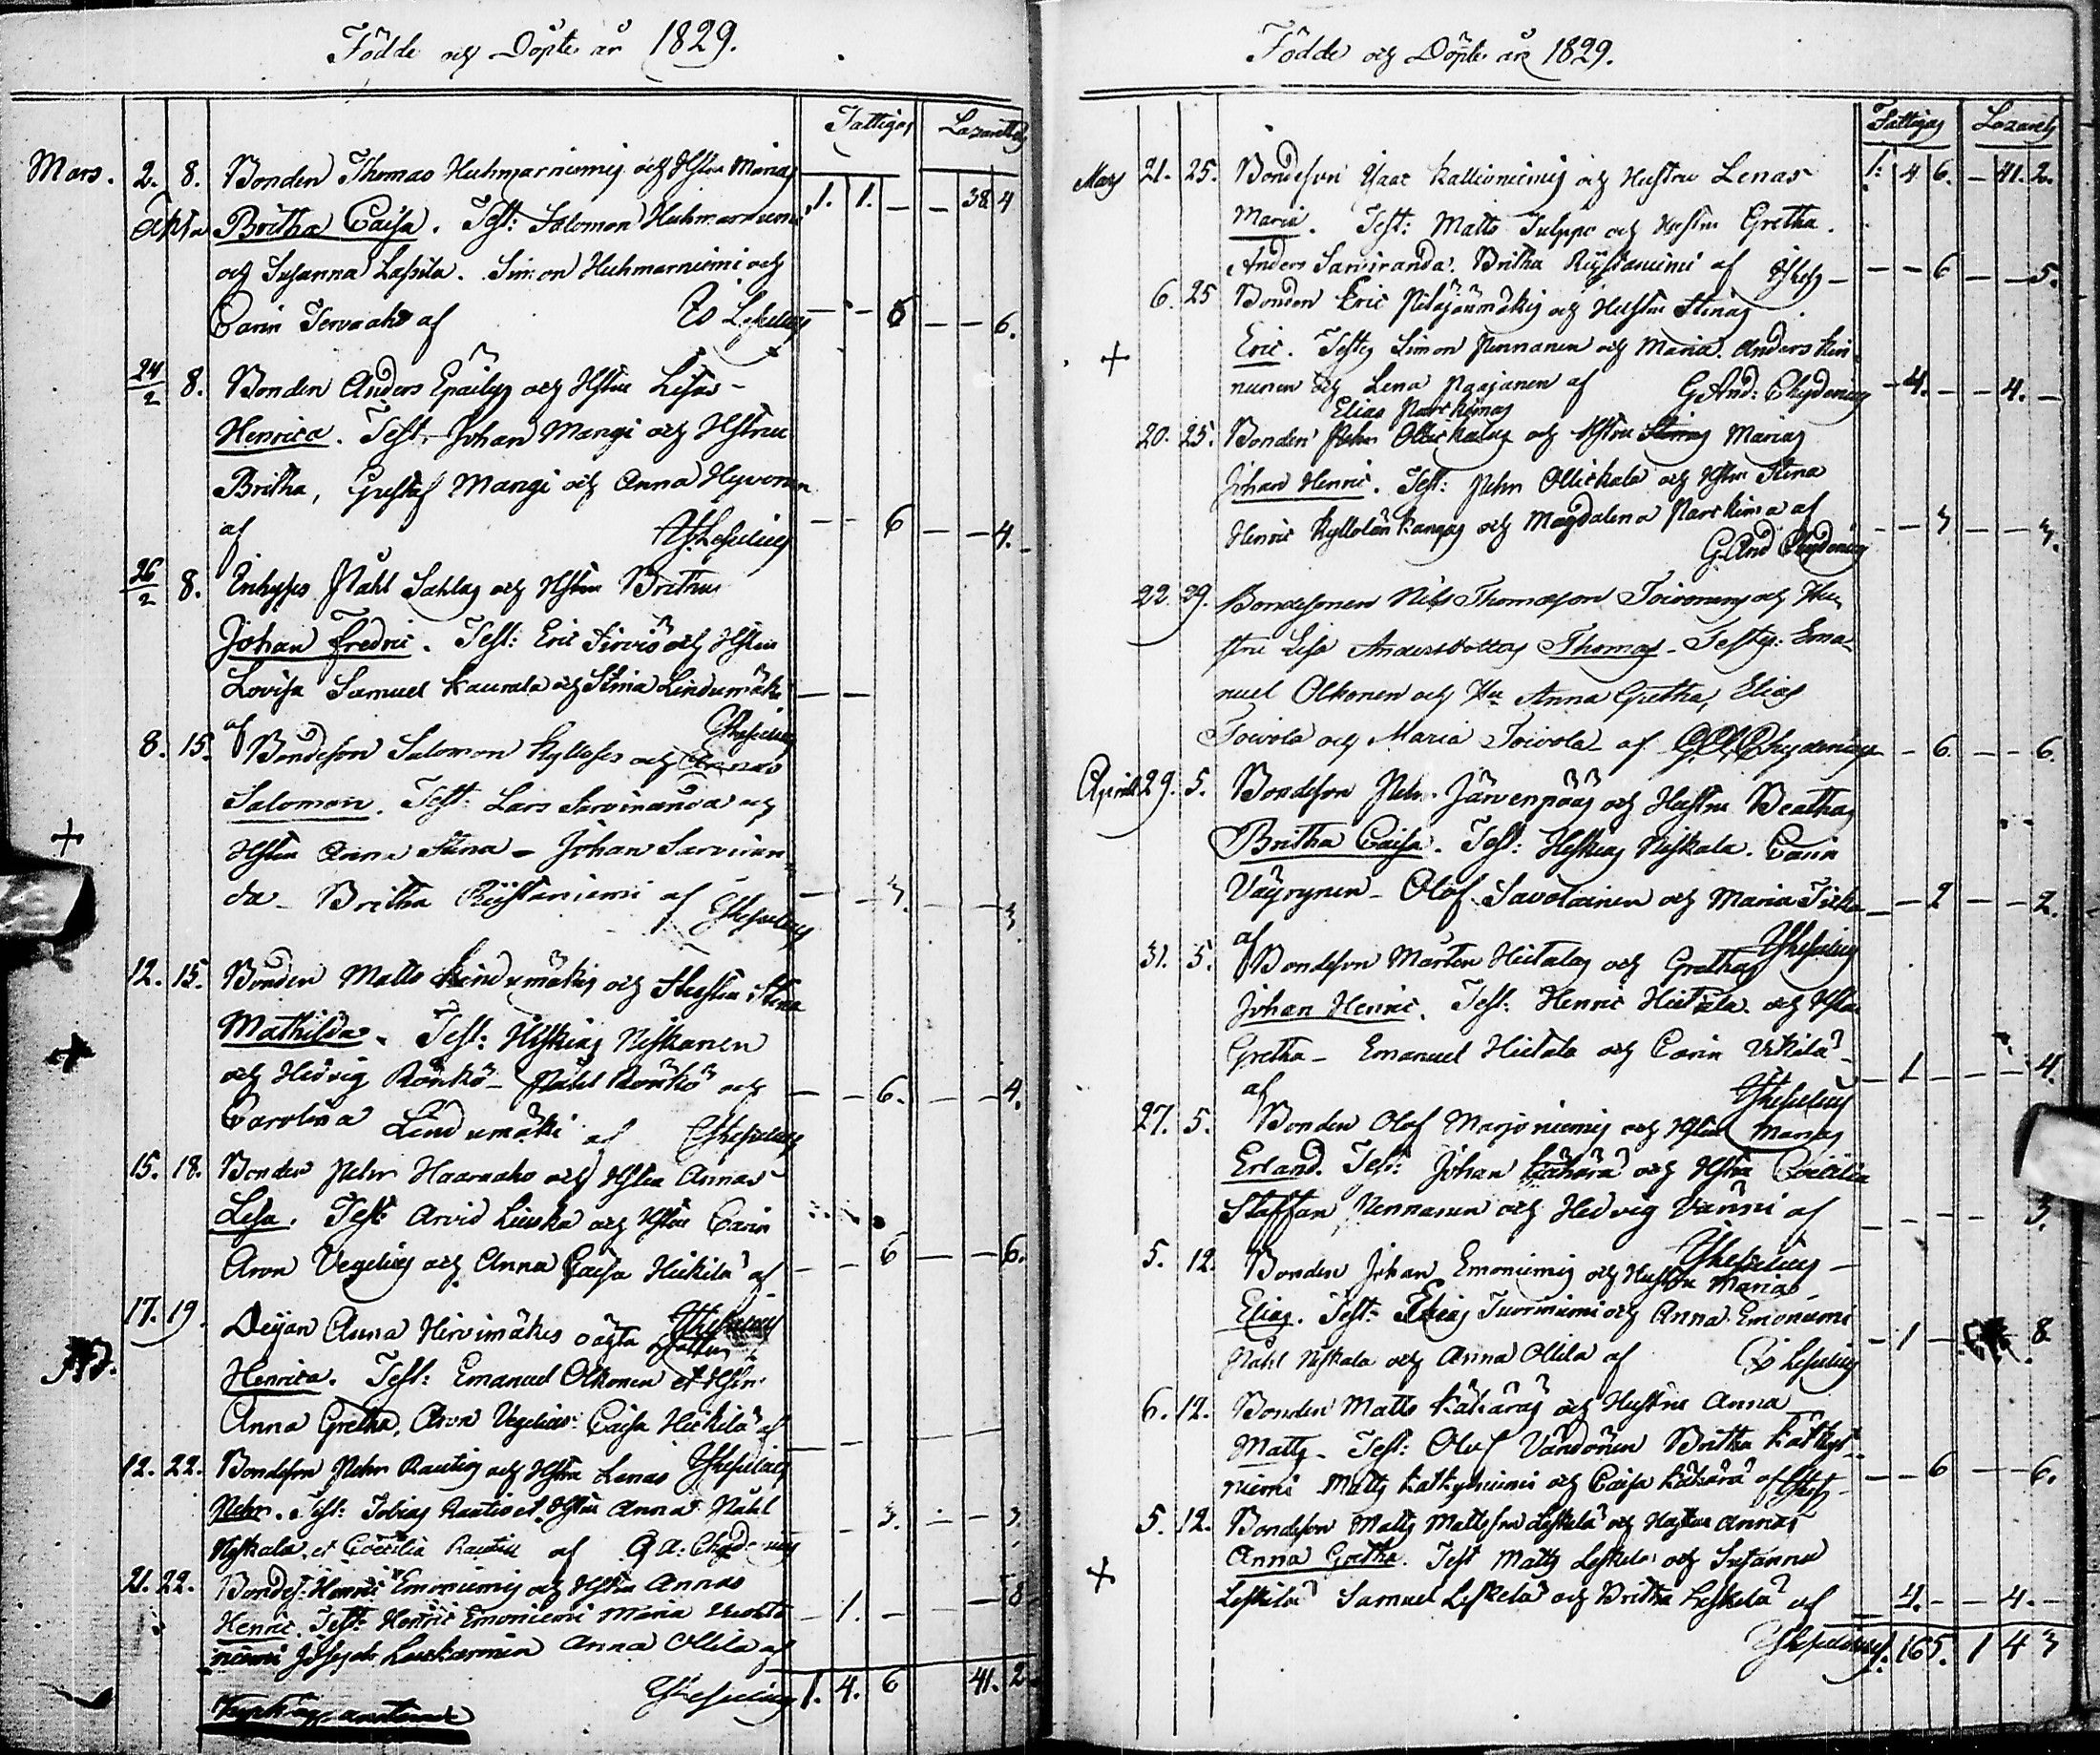 Födde och Döpte år 1829.
Fattigas Lazarett
Mars. 2. 8. Bonden Thomas Huhmarniemis och Hstru Marias 1. 1. – – 38 4
Britha Caisa. Test: Salomon Huhmarniemi
och Susanna Lassila. Simon Huhmarniemi och
Carin Tervaaho af – – 6 – – 6.
24/2 8. Bonden Anders och Hstru Lisas
Henrica. Test. Johan Mangi och Hstru
Britha, Gustaf Mangi och Anna Hyvönen
af – – 6 – – 4.
26/2 8. Påhl Sahlas och Hstru Brithas
Johan Fredric. Test: Eric Sirviö och Hstru
Lovisa Samuel Kaurala och Stina Lindumäki – –
af
8. 15. Bondeson Salomon och Annas
Salomon. Test: Lars Sarviranda och
+ Hstru Anna Stina – Johan Sarviran
da – Britha Riistaniemi af – – 3. – – 3.
12. 15. Bonden Matts Lindumäkis och Hustru Stina
+ Mathilda. Test: Hiskias Niskanen
och Hedvig Rönkö – Påhl Rönkö och – – 6. – – 4.
Carolina Lindumäki af
15. 18. Bonden Pehr Haaraaho och Hstru Annas
Lisa. Test: Arvid Liuska och Hstru Carin
Aron Vegelius och Anna Caisa Heikilä af – – 6 – – 6.
17. 19. Pigan Anna Hirvimäkis oägta
Henrica. Test: Emanuel Olkonen et Hstru
Anna Gretha, Aron Vegelius Caisa Heikilä af
12. 22. Bondeson Pehr Rautios och Hstru Lenas
Pehr. Test: Tobias Rautio et Hstru Anna Påhl – – 3. – – 3.
Niskala et Coecilia Rautio af G A: Chydenius
21. 22. Bondes. Henric Emoniemis och Hstru Annas
Henric. Test: Henric Emoniemi Maria – 1. – – – 8
niemi Anna Ollila af
1. 4. 6 41. 2.
Födde och Döpte år 1829.
Fattigas Lazarett
Mars 21. 25. Bondeson Isaac Kallioniemis och Hustru Lenas 1. 4 6. – 41. 2.
Maria. Test: Matts Tulppo och Hustru Gretha.
Anders Sarviranda. Britha Riistaniemi af – – 6 – – 5.
6. 25 Bonden Eric och Hustru Stinas
+ Eric. Testes Simon Pennanen och Maria. Anders Kin
nunen och Lena Paajanen af G. And: Chydenius – 4. – – 4. –
Elias Parckimas
20. 25. Bonden Pehr Ollickalas och Hstru Stinas Marias
Johan Henric. Test: Pehr Ollickala och Hstru Stina
Henric Kyllolänkangas och Magdalena Parckima af – – 3 – – 3.
G. And Chydenius
22. 29. Bondesonen Nils Thomasson Toivonens och Hu
stru Lisa Andersdotters Thomas – Testes: Ema
nuel Olkonen och Hu Anna Gretha, Elias
Toivola och Maria Toivola af G. A. Chydenius – 6. – – 6.
April 29. 5. Bondeson Pehr Järvenpääs och Hustru Beathas
Britha Caisa. Test: Hiskias Niskala. Carin
Väyrynen – Olof Savolainen och Maria – – 2 – – 2.
af
31. 5. Bondeson Mårten Hietalas och Grethas
Johan Henric. Test: Henric Hietala och Hstru
Gretha – Emanuel Hietala och Carin – 1 – – – 4.
af
27. 5. Bonden Olof Marjoniemis och Hstru Marias
Erland. Test: Johan Kähärä och Hstru Coecilia
Staffan Pennanen och Hedvig Vänni af – – – – – 3.
5. 12. Bonden Johan Emoniemis och Hustru Marias
Elias. Test: Elias och Anna Emoniemi
Påhl Niskala och Anna Ollila af – 1 – 8
6. 12. Bonden Matts Kähäräs och Hustru Anna
Matts – Test: Olof Vändönen Britha Kätkyt
niemi Matts Kätkytniemi och Caisa Kähärä af – – 6 – – 6.
5. 12. Bondeson Matts Mattsson Leskelä och Hustru Annas
+ Anna Gretha. Test Matts Leskelä och Susanna
Leskelä Samuel Leskelä och Britha Leskelä af – 4. – – 4. –
1. 16 5. 1 4 3